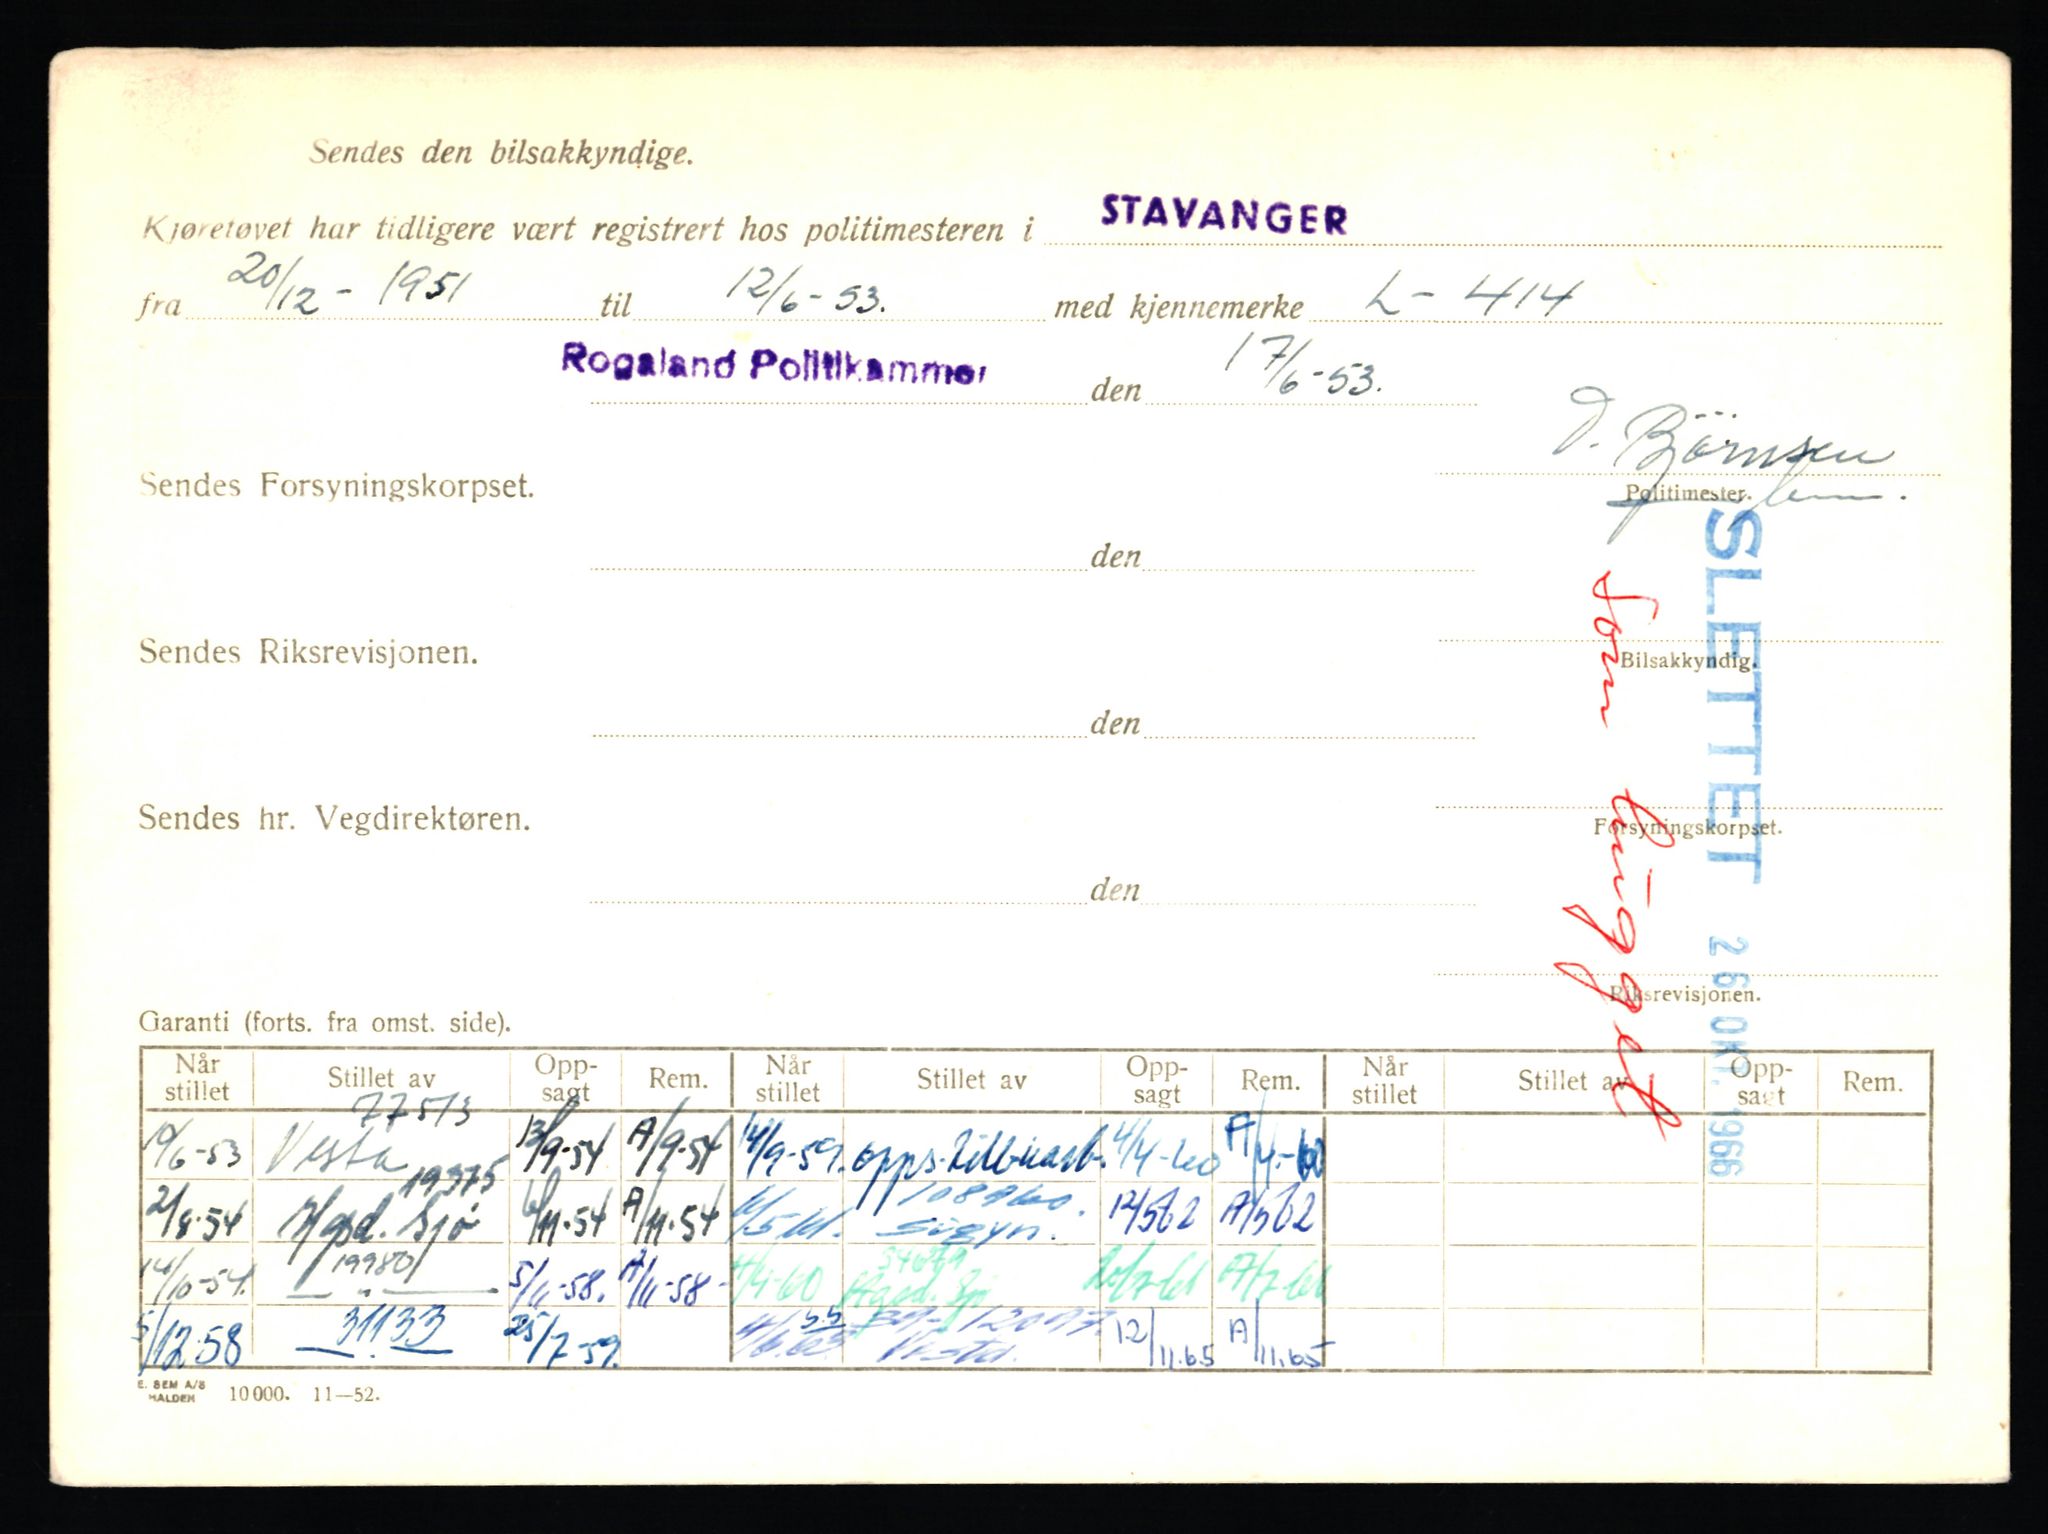 Sendes den bilsakkyndige.
Kjøretøyet har tidligere vært registrert hos politimesteren i STAVANGER
fra 20/12 - 1951 til 12/6 - 53. med kjennemerke L - 414
Rogaland Politikammer den 17/6 - 53.
D. Björnsen
Sendes Forsyningskorpset. Politimester.
den
Sendes Riksrevisjonen. Bilsakkyndig.
den
Sendes hr. Vegdirektøren. Forsyningskorpset.
den
Riksrevisjonen.
SLETTET 26 OKT. 1966
som hugget
Garanti (forts. fra omst. side).
Når stillet Stillet av Opp-sagt Rem. Når stillet Stillet av Opp-sagt Rem. Når stillet Stillet av Opp-sagt Rem.
77513
10/6-53 Vesta 13/9-54 A/9-54 14/9-59. 4/4-60 A/4-60
19375
2/8-54 Sjø 6/11-54 A/11-54 Sigyn. 12/562 A/562
19980
14/10-54. 5/11-58. A/11-58- 4/4-60 20/7-61 A/7-61
5/12.58 31133 25/7-59. Vesta. 12/11.65 A/11.65
E. SEM A/S
HALDEN 10 000. 11—52.